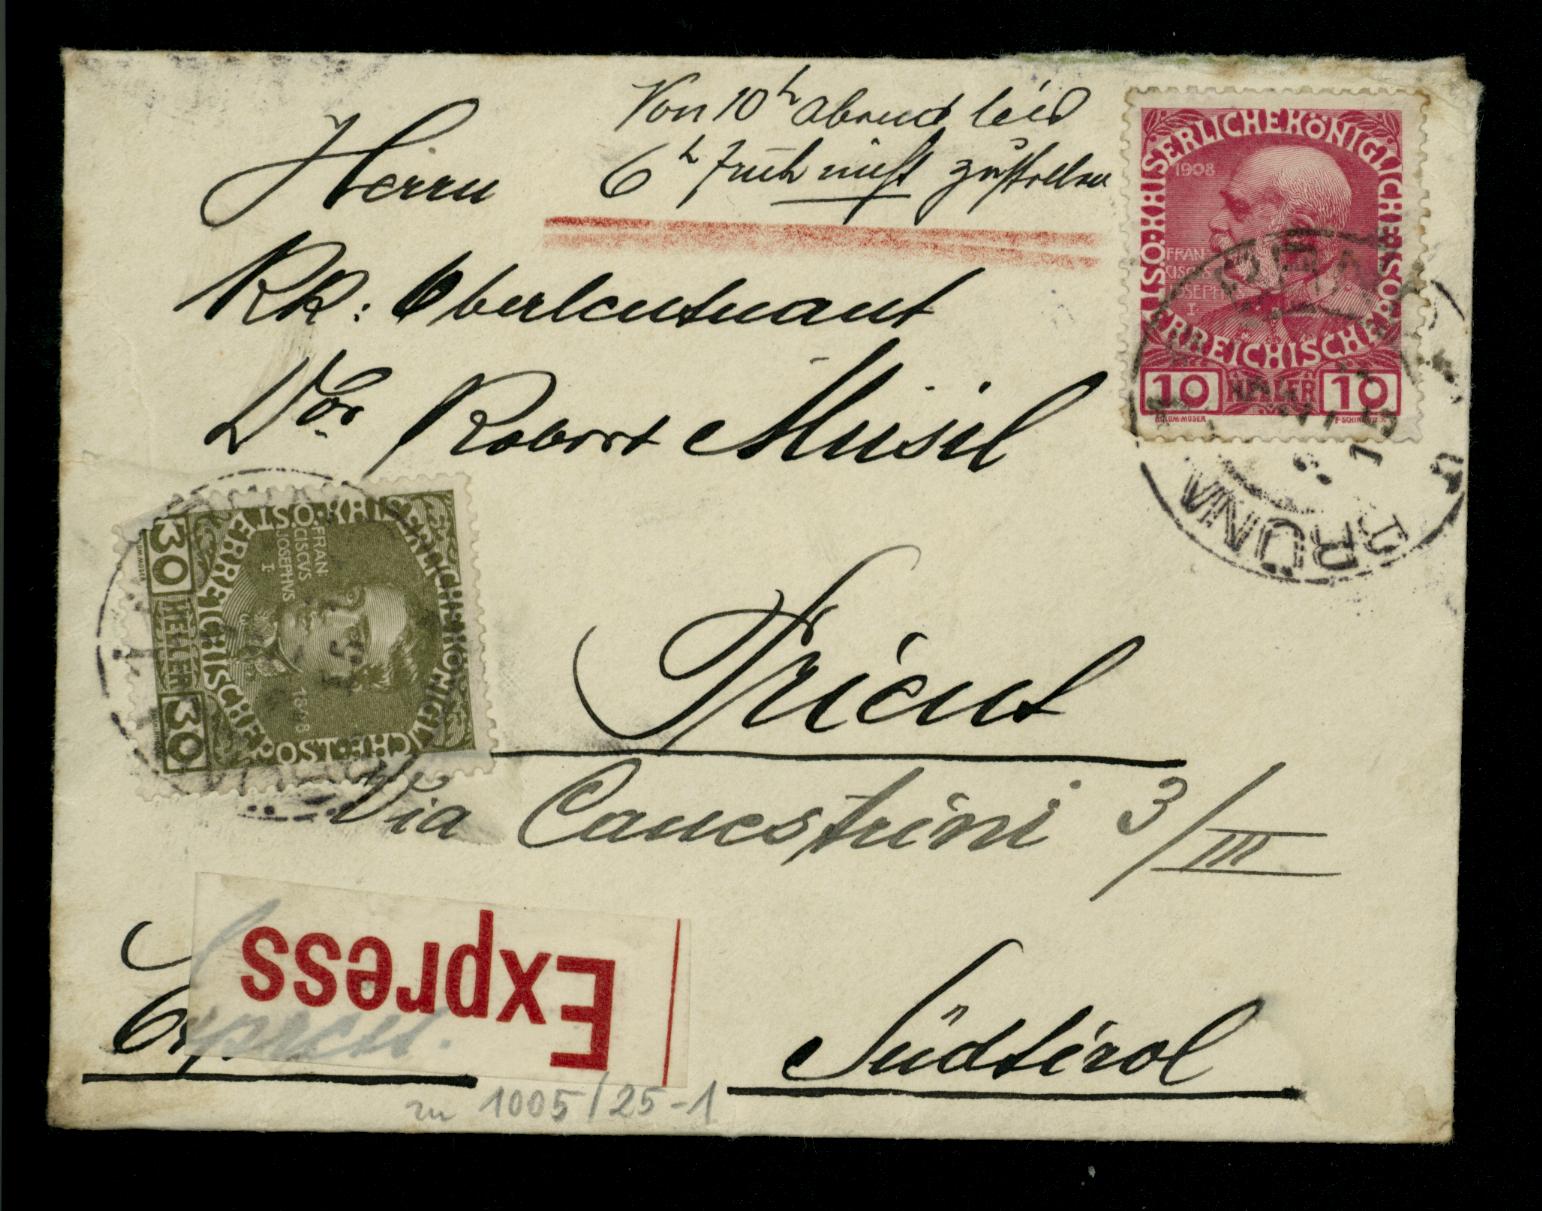 Von 10h abend bis
6h früh nicht zustellen
Herrn
KK: Oberleutnant
Dor Robert Musil
Trient
Via Canestrini 3/III
Express
Express.
Südtirol
zu 1005/25-1
KAISERLICHE KÖNIGLICHE ÖSTERREICHISCHE
1908
FRAN
CISCVS
IOSEPHVS
I
10 HELLER 10
KAISERLICHE KÖNIGLICHE ÖSTERREICHISCHE
FRAN
CISCVS
IOSEPHVS
I
30 HELLER 30
BRÜNN